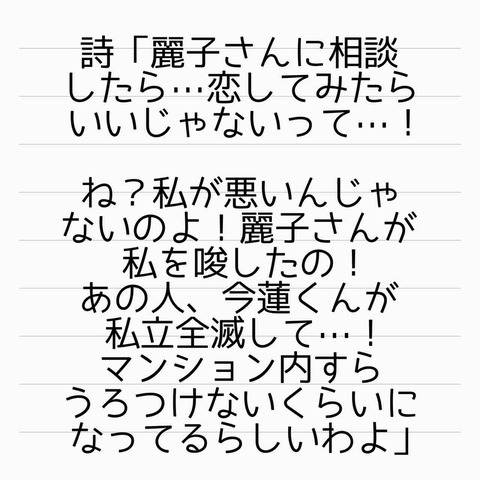 詩「麗子さんに相談
したら…恋してみたら
いいじゃないって…！
ね？私が悪いんじゃ
ないのよ！麗子さんが
私を唆したの！
あの人、今蓮くんが
私立全滅して…！
マンション内すら
うろつけないくらいに
なってるらしいわよ」